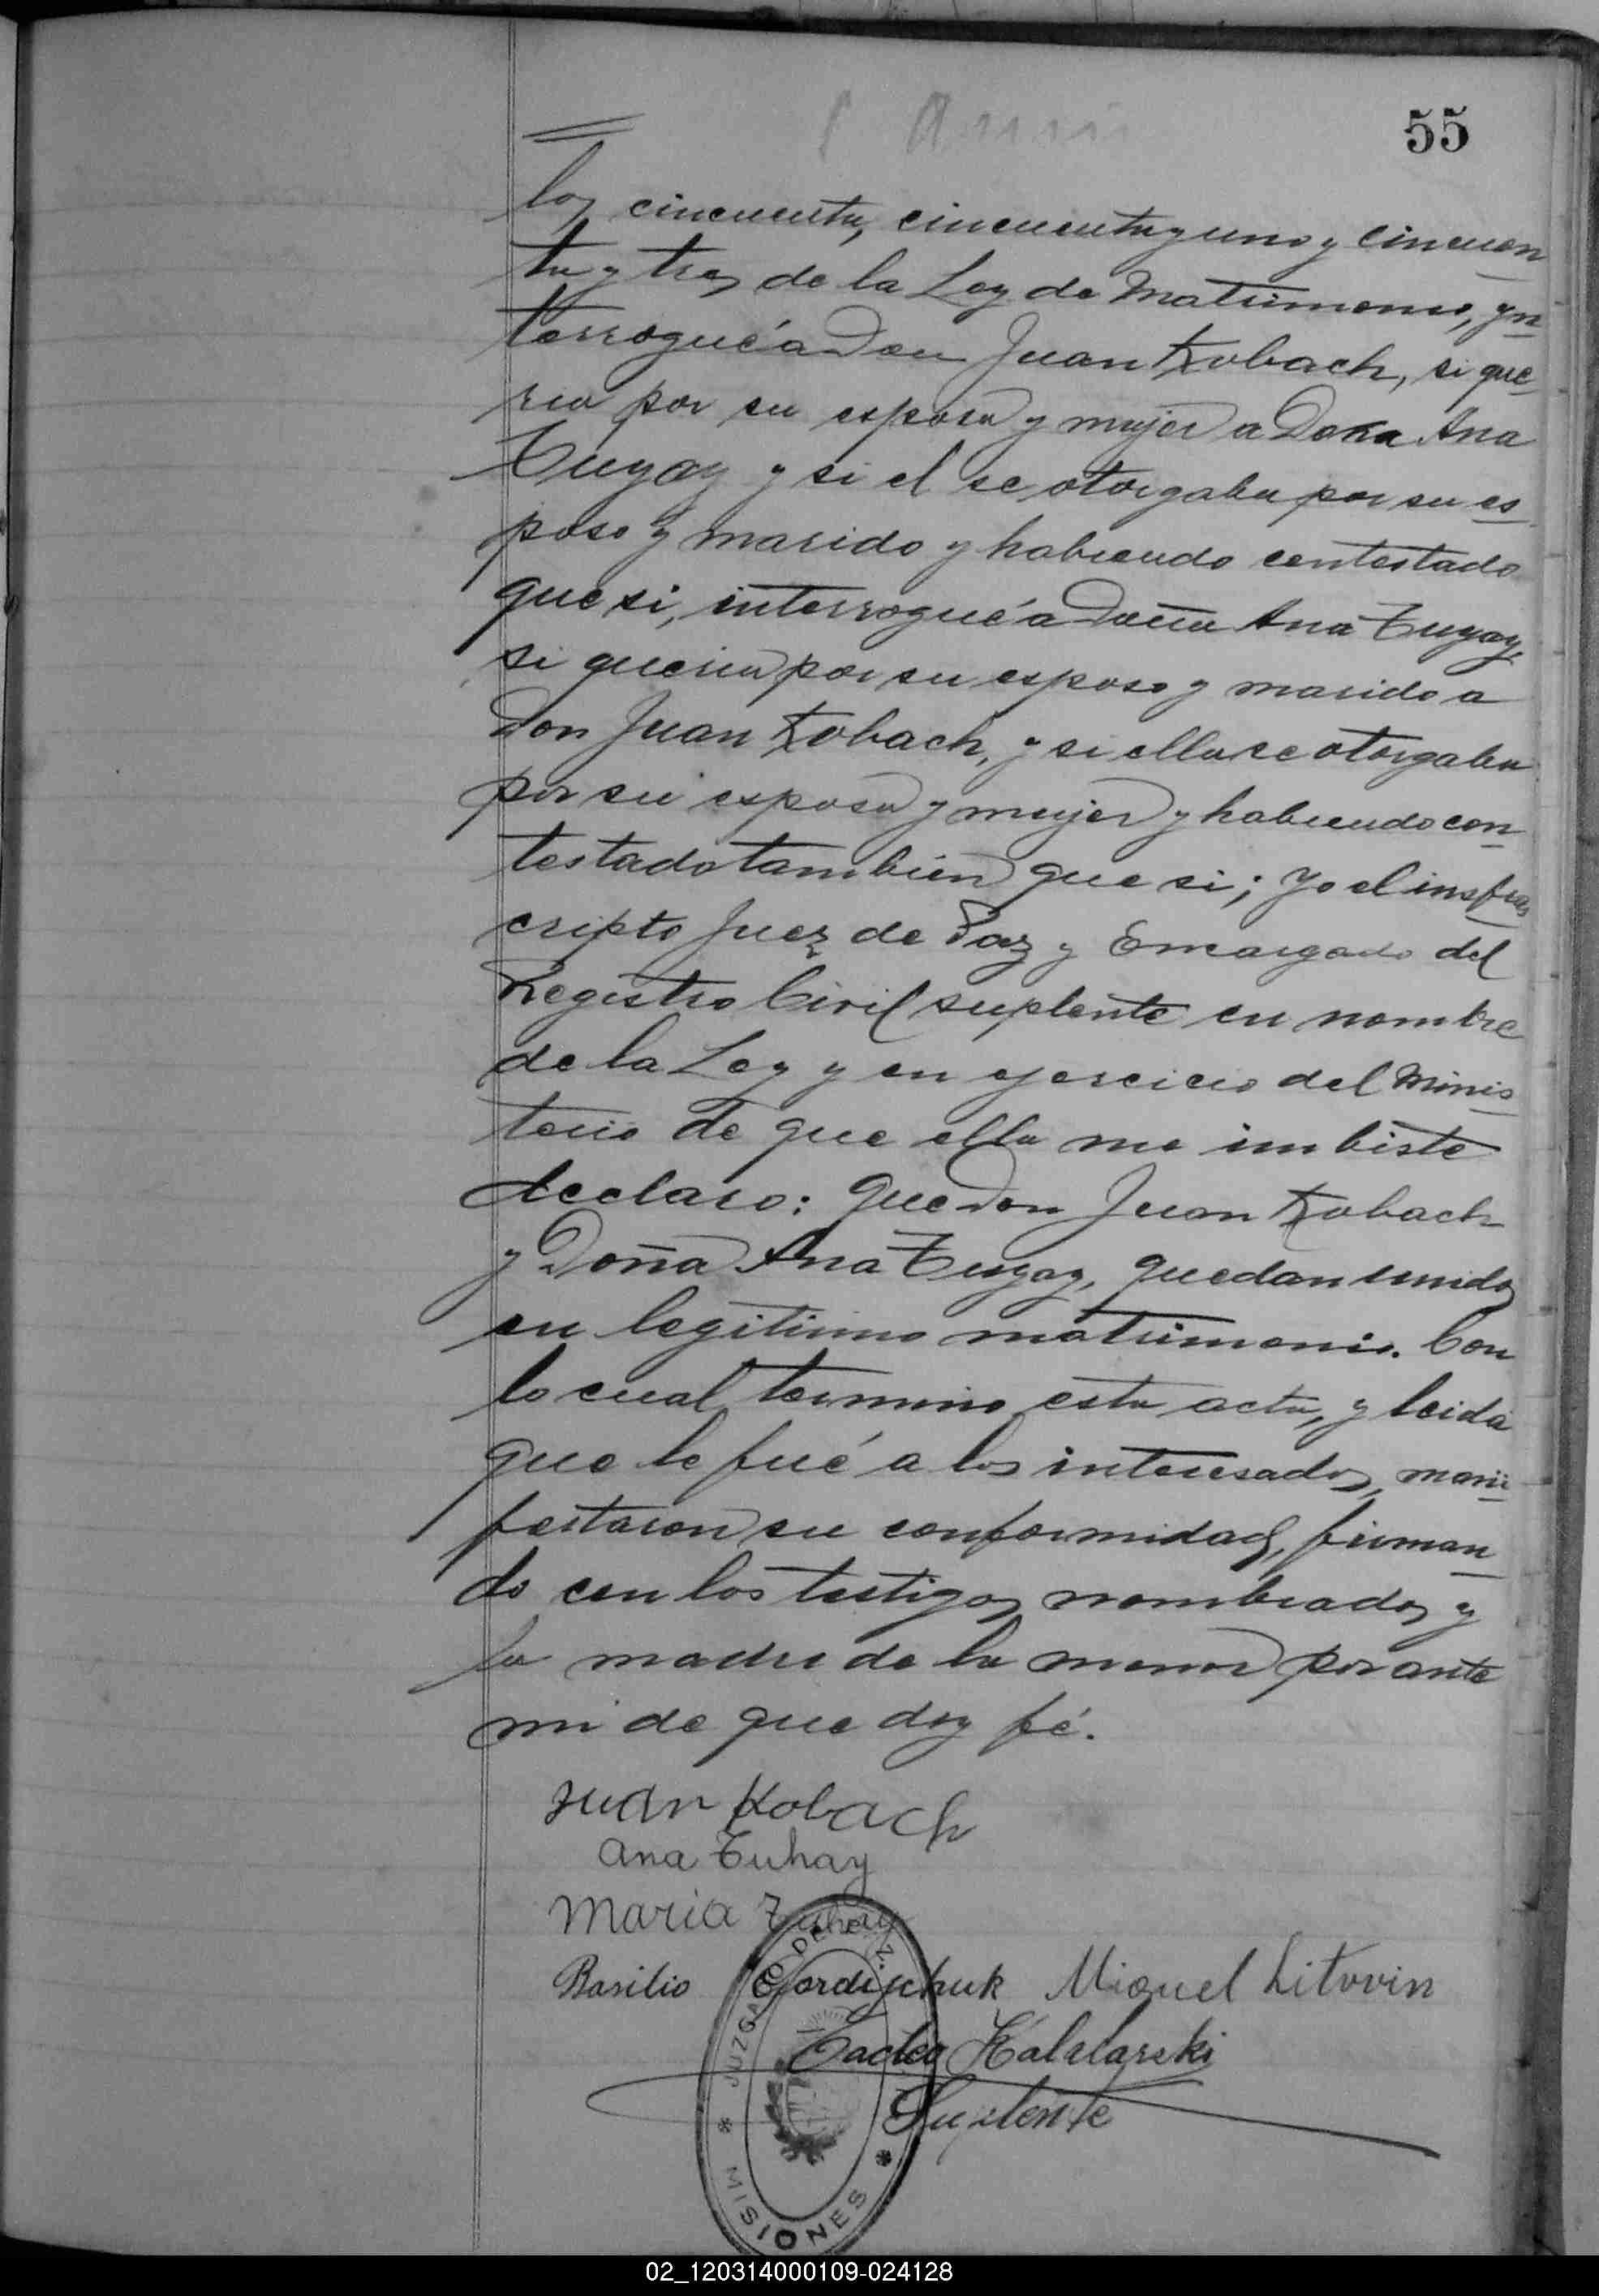 55
los cincuenta, cincuenta y uno y cincuen
ta y tres de la Ley de Matrimonio, yn
terrogué a Don Juan Kobach, si que
ria por su esposa y mujer a Doña Ana
Tuyay y si el se otorgaba por su es
poso y marido y habiendo contestado
que si, interrogué a Doña Ana Tuyay,
si queria por su esposo y marido a
Don Juan Kobach, y si ella se otorgaba
por su esposa y mujer y habiendo con
testado tambien que si; Yo el insfras
cripto Juez de Paz y Encargado del
Registro Civil suplente en nombre
de la Ley y en ejercicio del Minis
terio de que ella me imbiste
declaro: Que Don Juan Kobach
y Doña Ana Tuyay, quedan unidos
en legitimo matrimonio. Con
lo cual termino esta acta, y leida
que le fué a los interesados, mani
festaron su conformidad, firman
do con los testigos nombrados y
la madre de la menor por ante
mi de que doy fé.
Juan Kobach
Ana Tuhay
Maria Tuhay
Basilio Gordijchuk Miguel Litovin
Tadeo
Suplente
JUZGADO DE PAZ
MISIONES
02_120314000109-024128